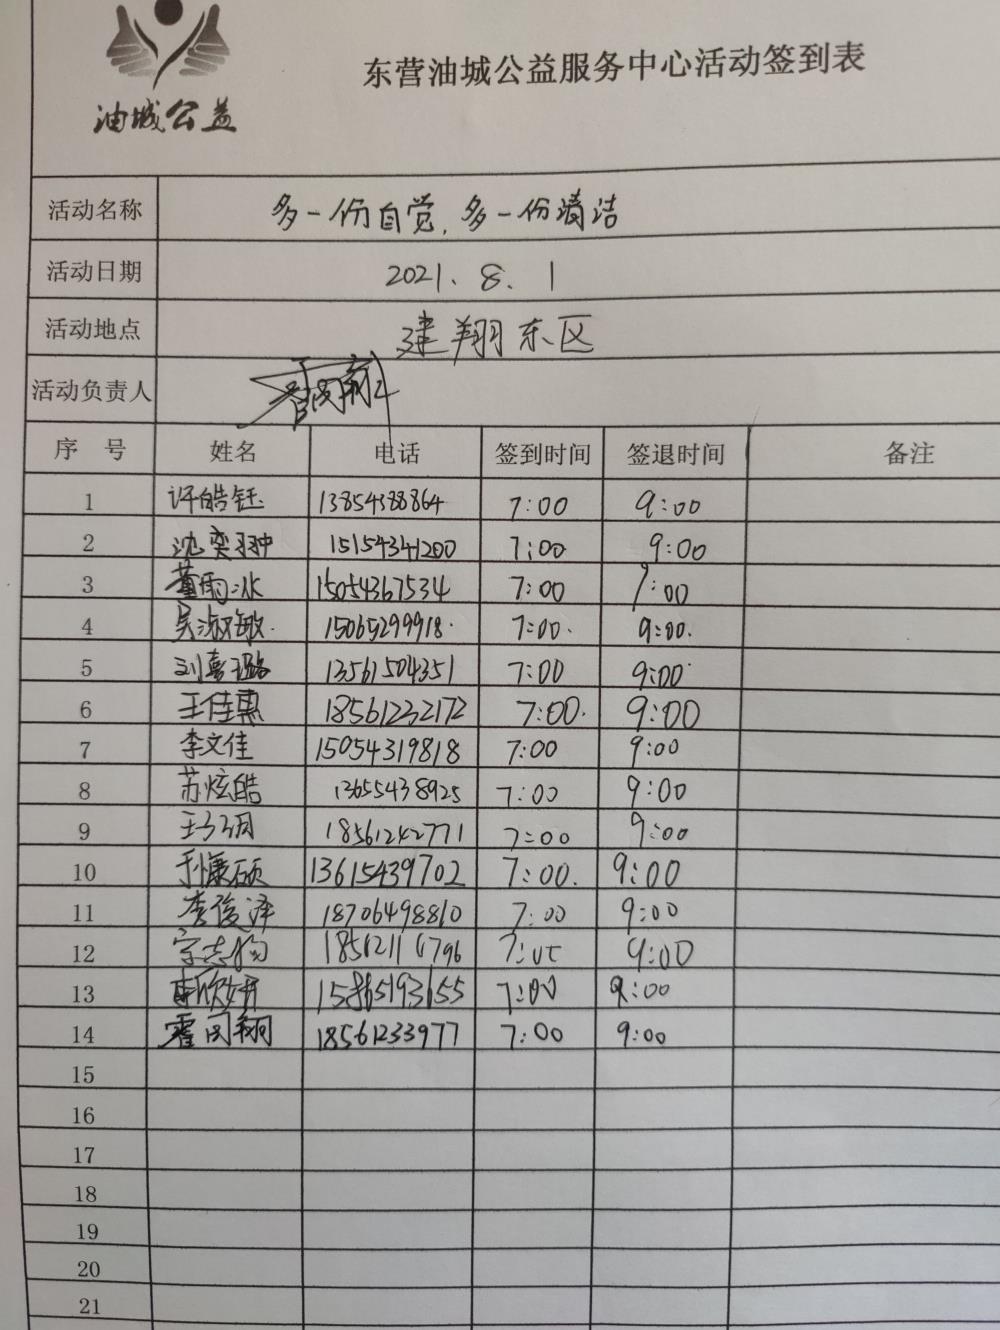 油城公益
东营油城公益服务中心活动签到表
活动名称 多一份自觉,多一份清洁
活动日期 2021.8.1
活动地点 建翔东区
活动负责人
序号 姓名 电话 签到时间 签退时间 备注
1 许皓钰 13854388864 7:00 9:00
2 沈奕翀 15154341200 7:00 9:00
3 董雨冰 15054367534 7:00 9:00
4 吴淑敏 15065299918 7:00 9:00
5 刘喜璐 13561504351 7:00 9:00
6 王佳惠 18561232172 7:00 9:00
7 李文佳 15054319818 7:00 9:00
8 苏炫皓 13655438925 7:00 9:00
9 18561242771 7:00 9:00
10 13615439702 7:00 9:00
11 李俊泽 18706498810 7:00 9:00
12 9:00
13 15865193655 7:00 9:00
14 霍同翔 18561233977 7:00 9:00
15
16
17
18
19
20
21